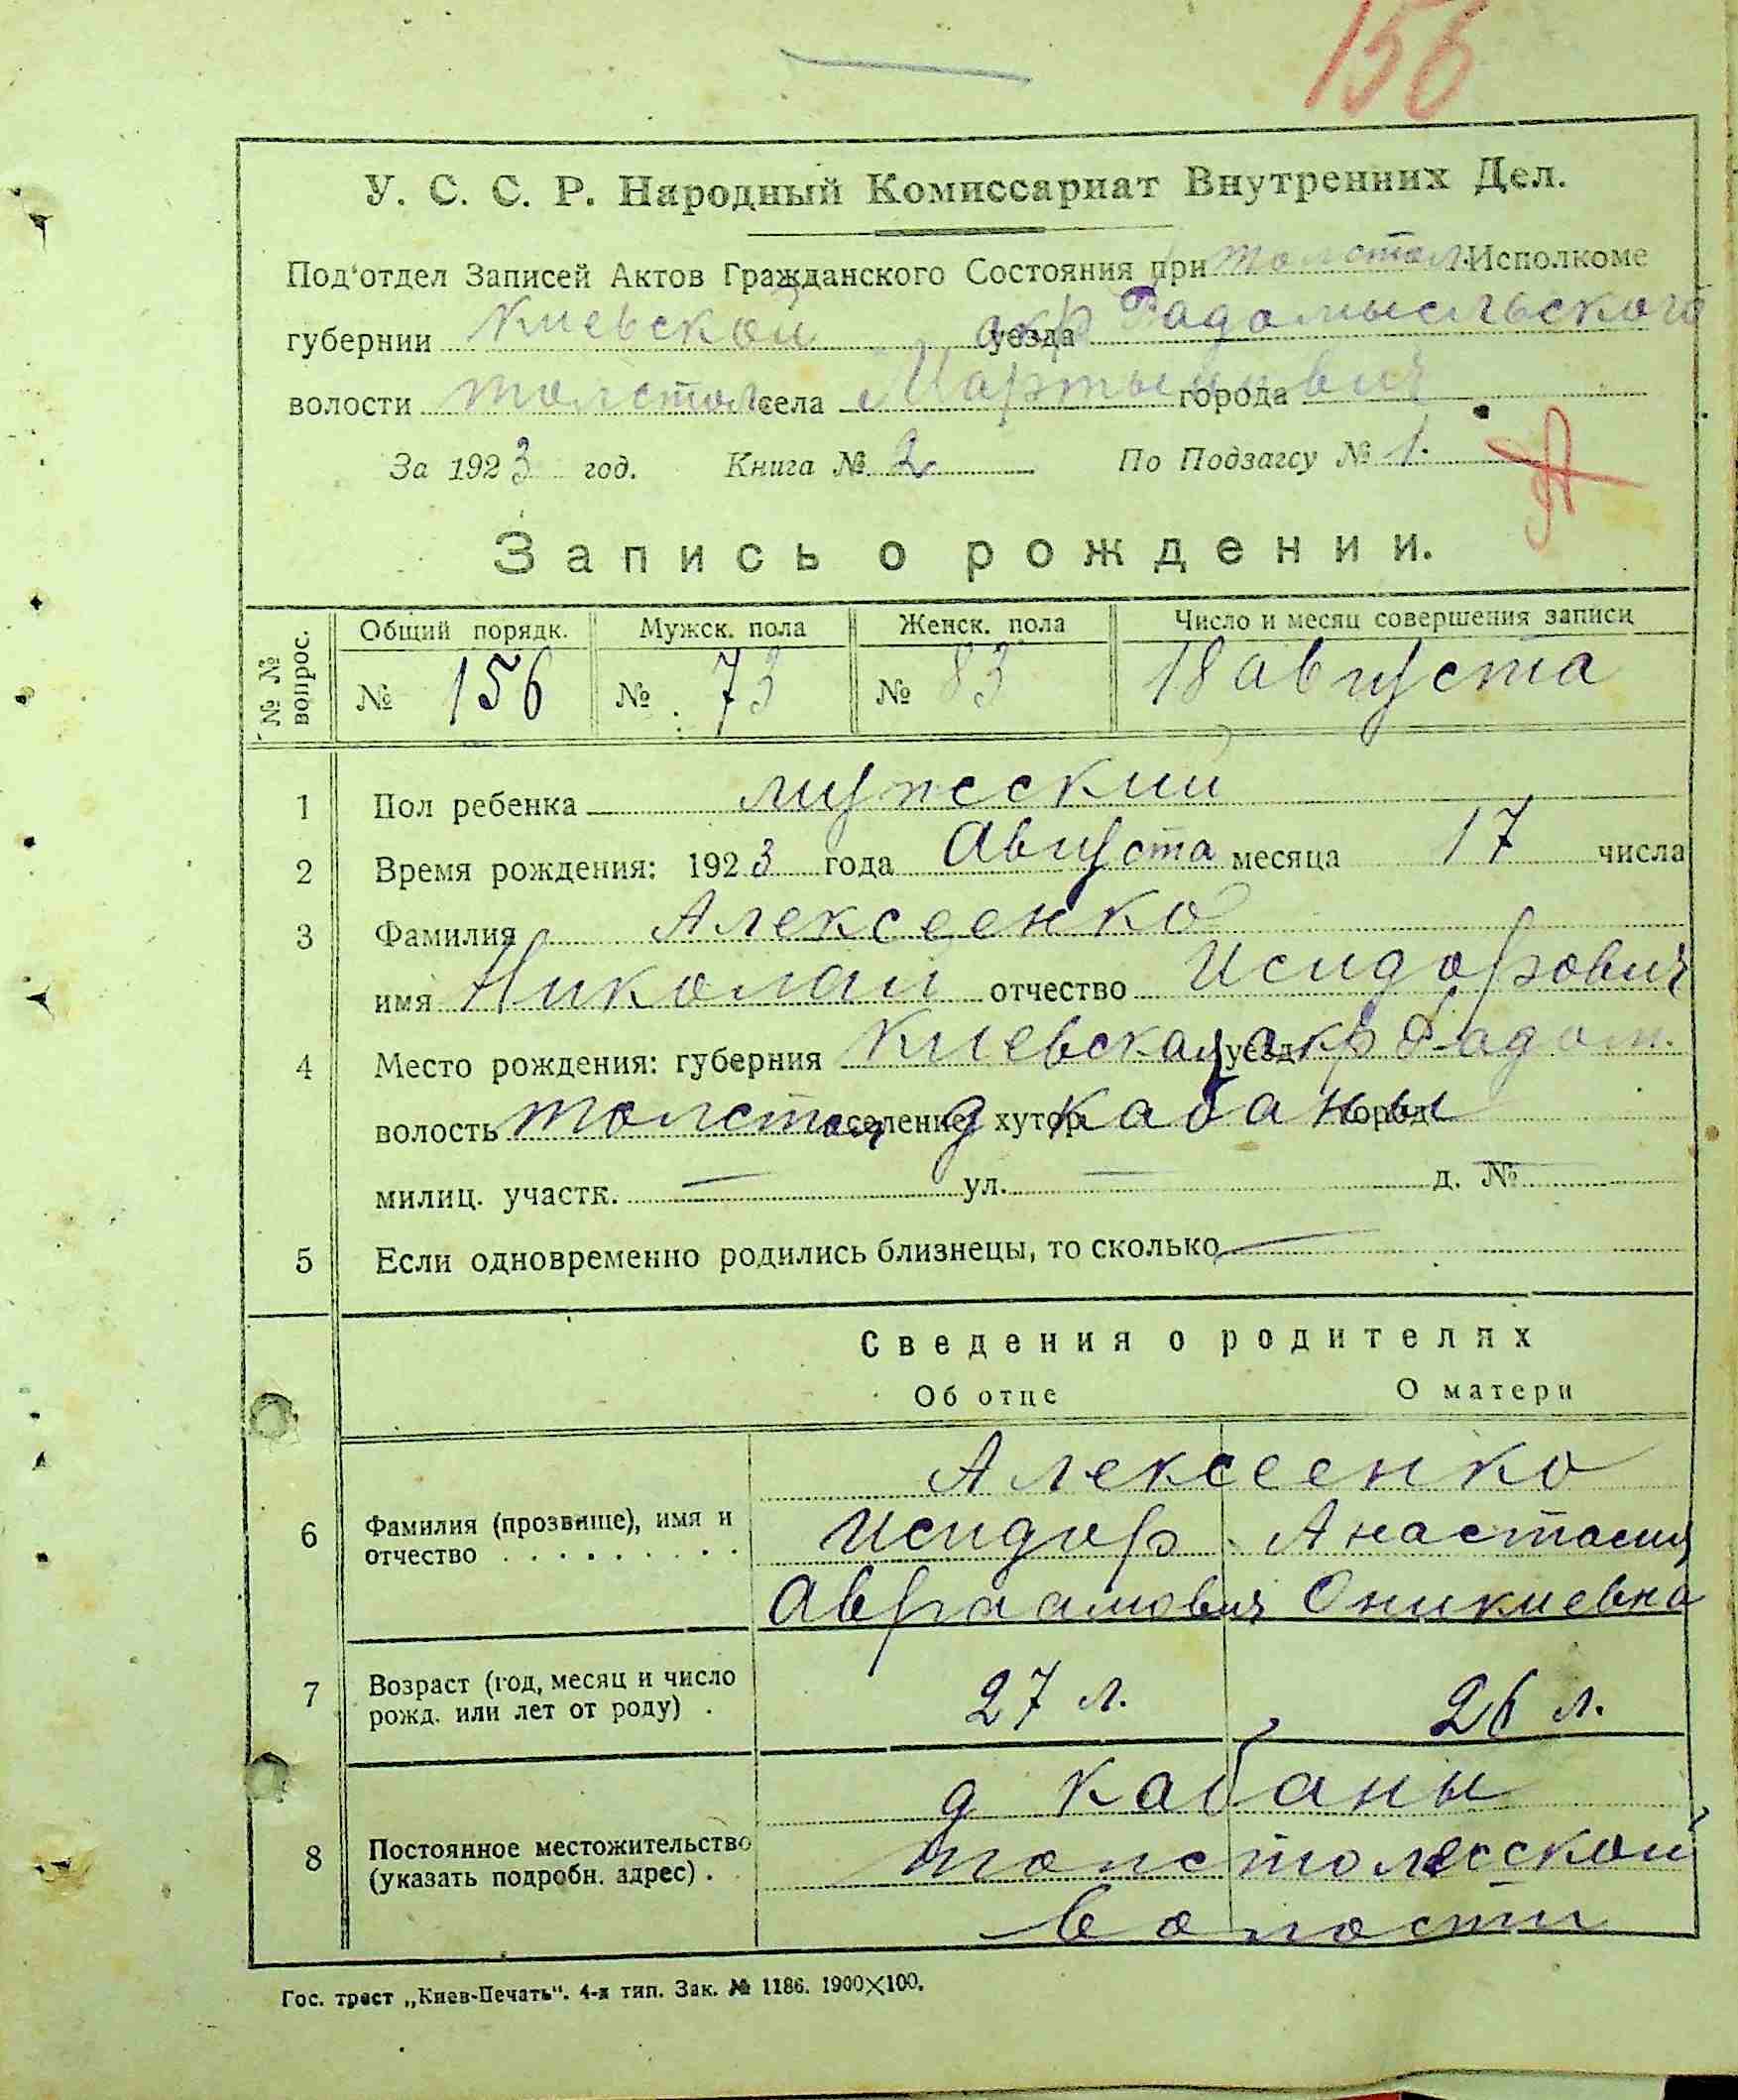 156
У. С. С. Р. Народный Комиссариат Внутренних Дел.
Под'отдел Записей Актов Гражданского Состояния при Толстол. Исполкоме
губернии Киевской уезда окр Радомысльского
волости Толстол. села Мартынович города
За 1923 год. Книга № 2 По Подзагсу № 1.
Запись о рождении.
№ № вопрос. Общий порядк. Мужск. пола Женск. пола Число и месяц совершения записи
№ 156 № 73 № 83 18 августа
1 Пол ребенка мужеский
2 Время рождения: 1923 года Августа месяца 17 числа
3 Фамилия Алексеенко
имя Николай отчество Исидорович
4 Место рождения: губерния Киевская уезд окр Радом.
волость Толстол селение д хутор Кабаны город
милиц. участк. — ул. — д. № —
5 Если одновременно родились близнецы, то сколько —
Сведения о родителях
Об отце О матери
Алексеенко
6 Фамилия (прозвище), имя и Исидор Анастасия
отчество . . . . . . . . . Авраамович Оникиевна
7 Возраст (год, месяц и число 27 л. 26 л.
рожд. или лет от роду) .
д Кабаны
8 Постоянное местожительство Толстолесской
(указать подробн. адрес) . волости
Гос. трест „Киев-Печать“. 4-я тип. Зак. № 1186. 1900×100.